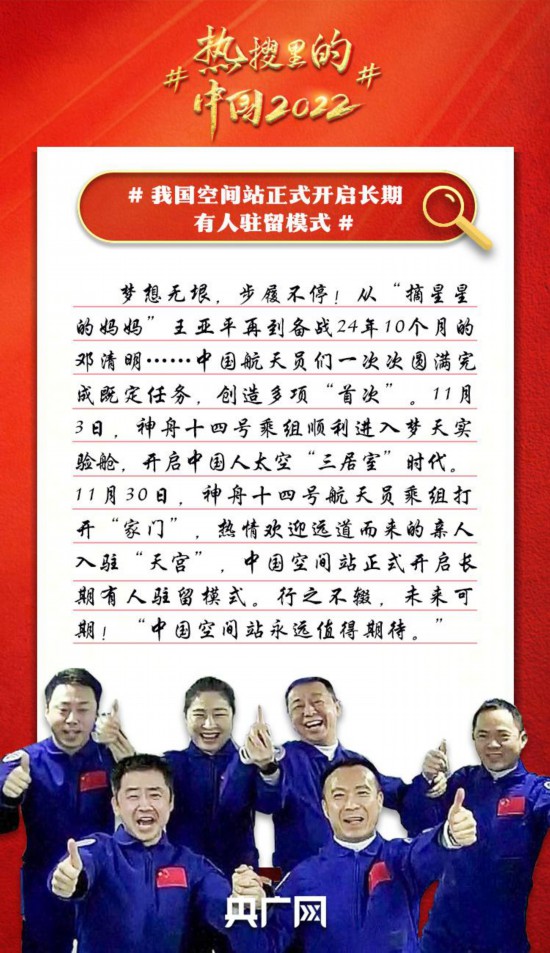 #热搜里的#
中国2022
# 我国空间站正式开启长期
有人驻留模式 #
梦想无垠，步履不停！从“摘星星
的妈妈”王亚平再到备战24年10个月的
邓清明……中国航天员们一次次圆满完
成既定任务，创造多项“首次”。11月
3日，神舟十四号乘组顺利进入梦天实
验舱，开启中国人太空“三居室”时代。
11月30日，神舟十四号航天员乘组打
开“家门”，热情欢迎远道而来的亲人
入驻“天宫”，中国空间站正式开启长
期有人驻留模式。行之不辍，未来可
期！“中国空间站永远值得期待。”
央广网